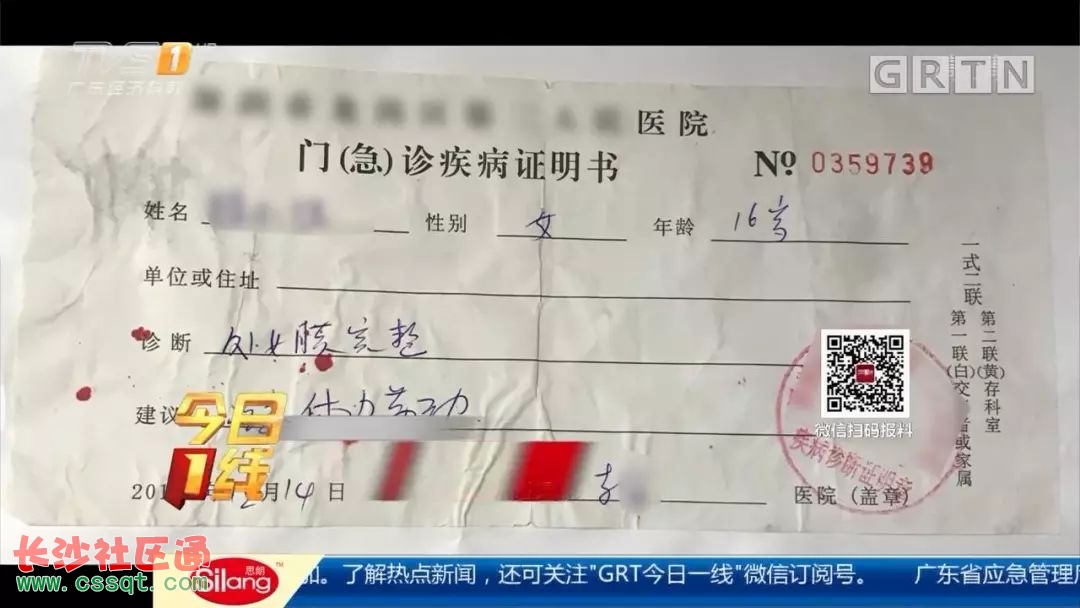 TVS 1
广东经济科教
GRTN
医院
门(急)诊疾病证明书
№ 0359739
姓名
性别 女
年龄 16岁
单位或住址
诊断 处女膜完整
建议
14日
李
医院(盖章)
疾病诊断证明章
一式二联
第一联(白)交 者或家属
第二联(黄)存科室
微信扫码报料
今日
1线
长沙社区通
www.cssqt.com
思朗
Silang
加。了解热点新闻,还可关注"GRT今日一线"微信订阅号。
广东省应急管理厅